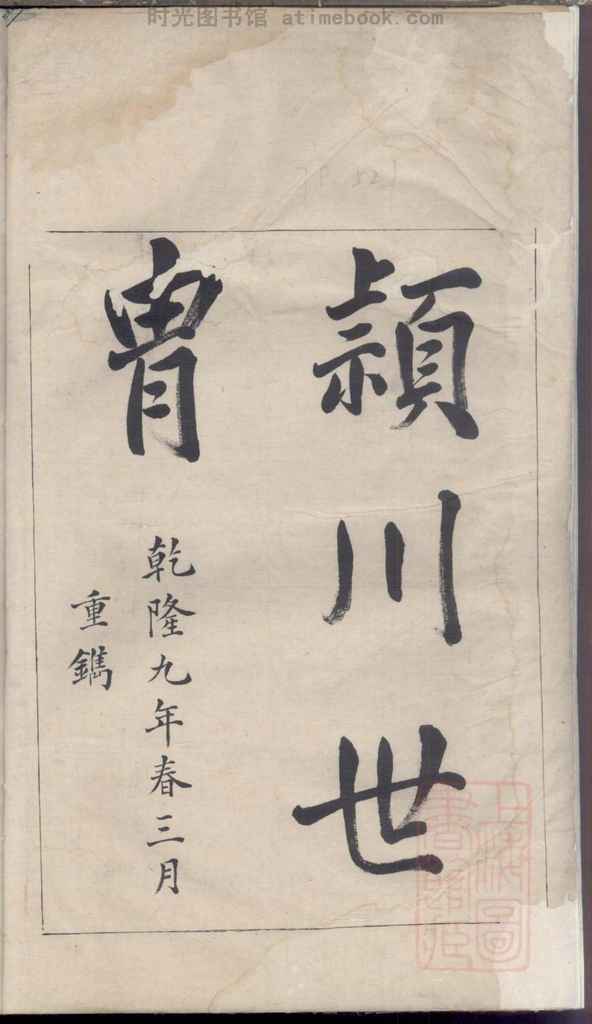 时光图书馆 atimebook.com
潁川世
胄
乾隆九年春三月
重鐫
上海圖
書館藏